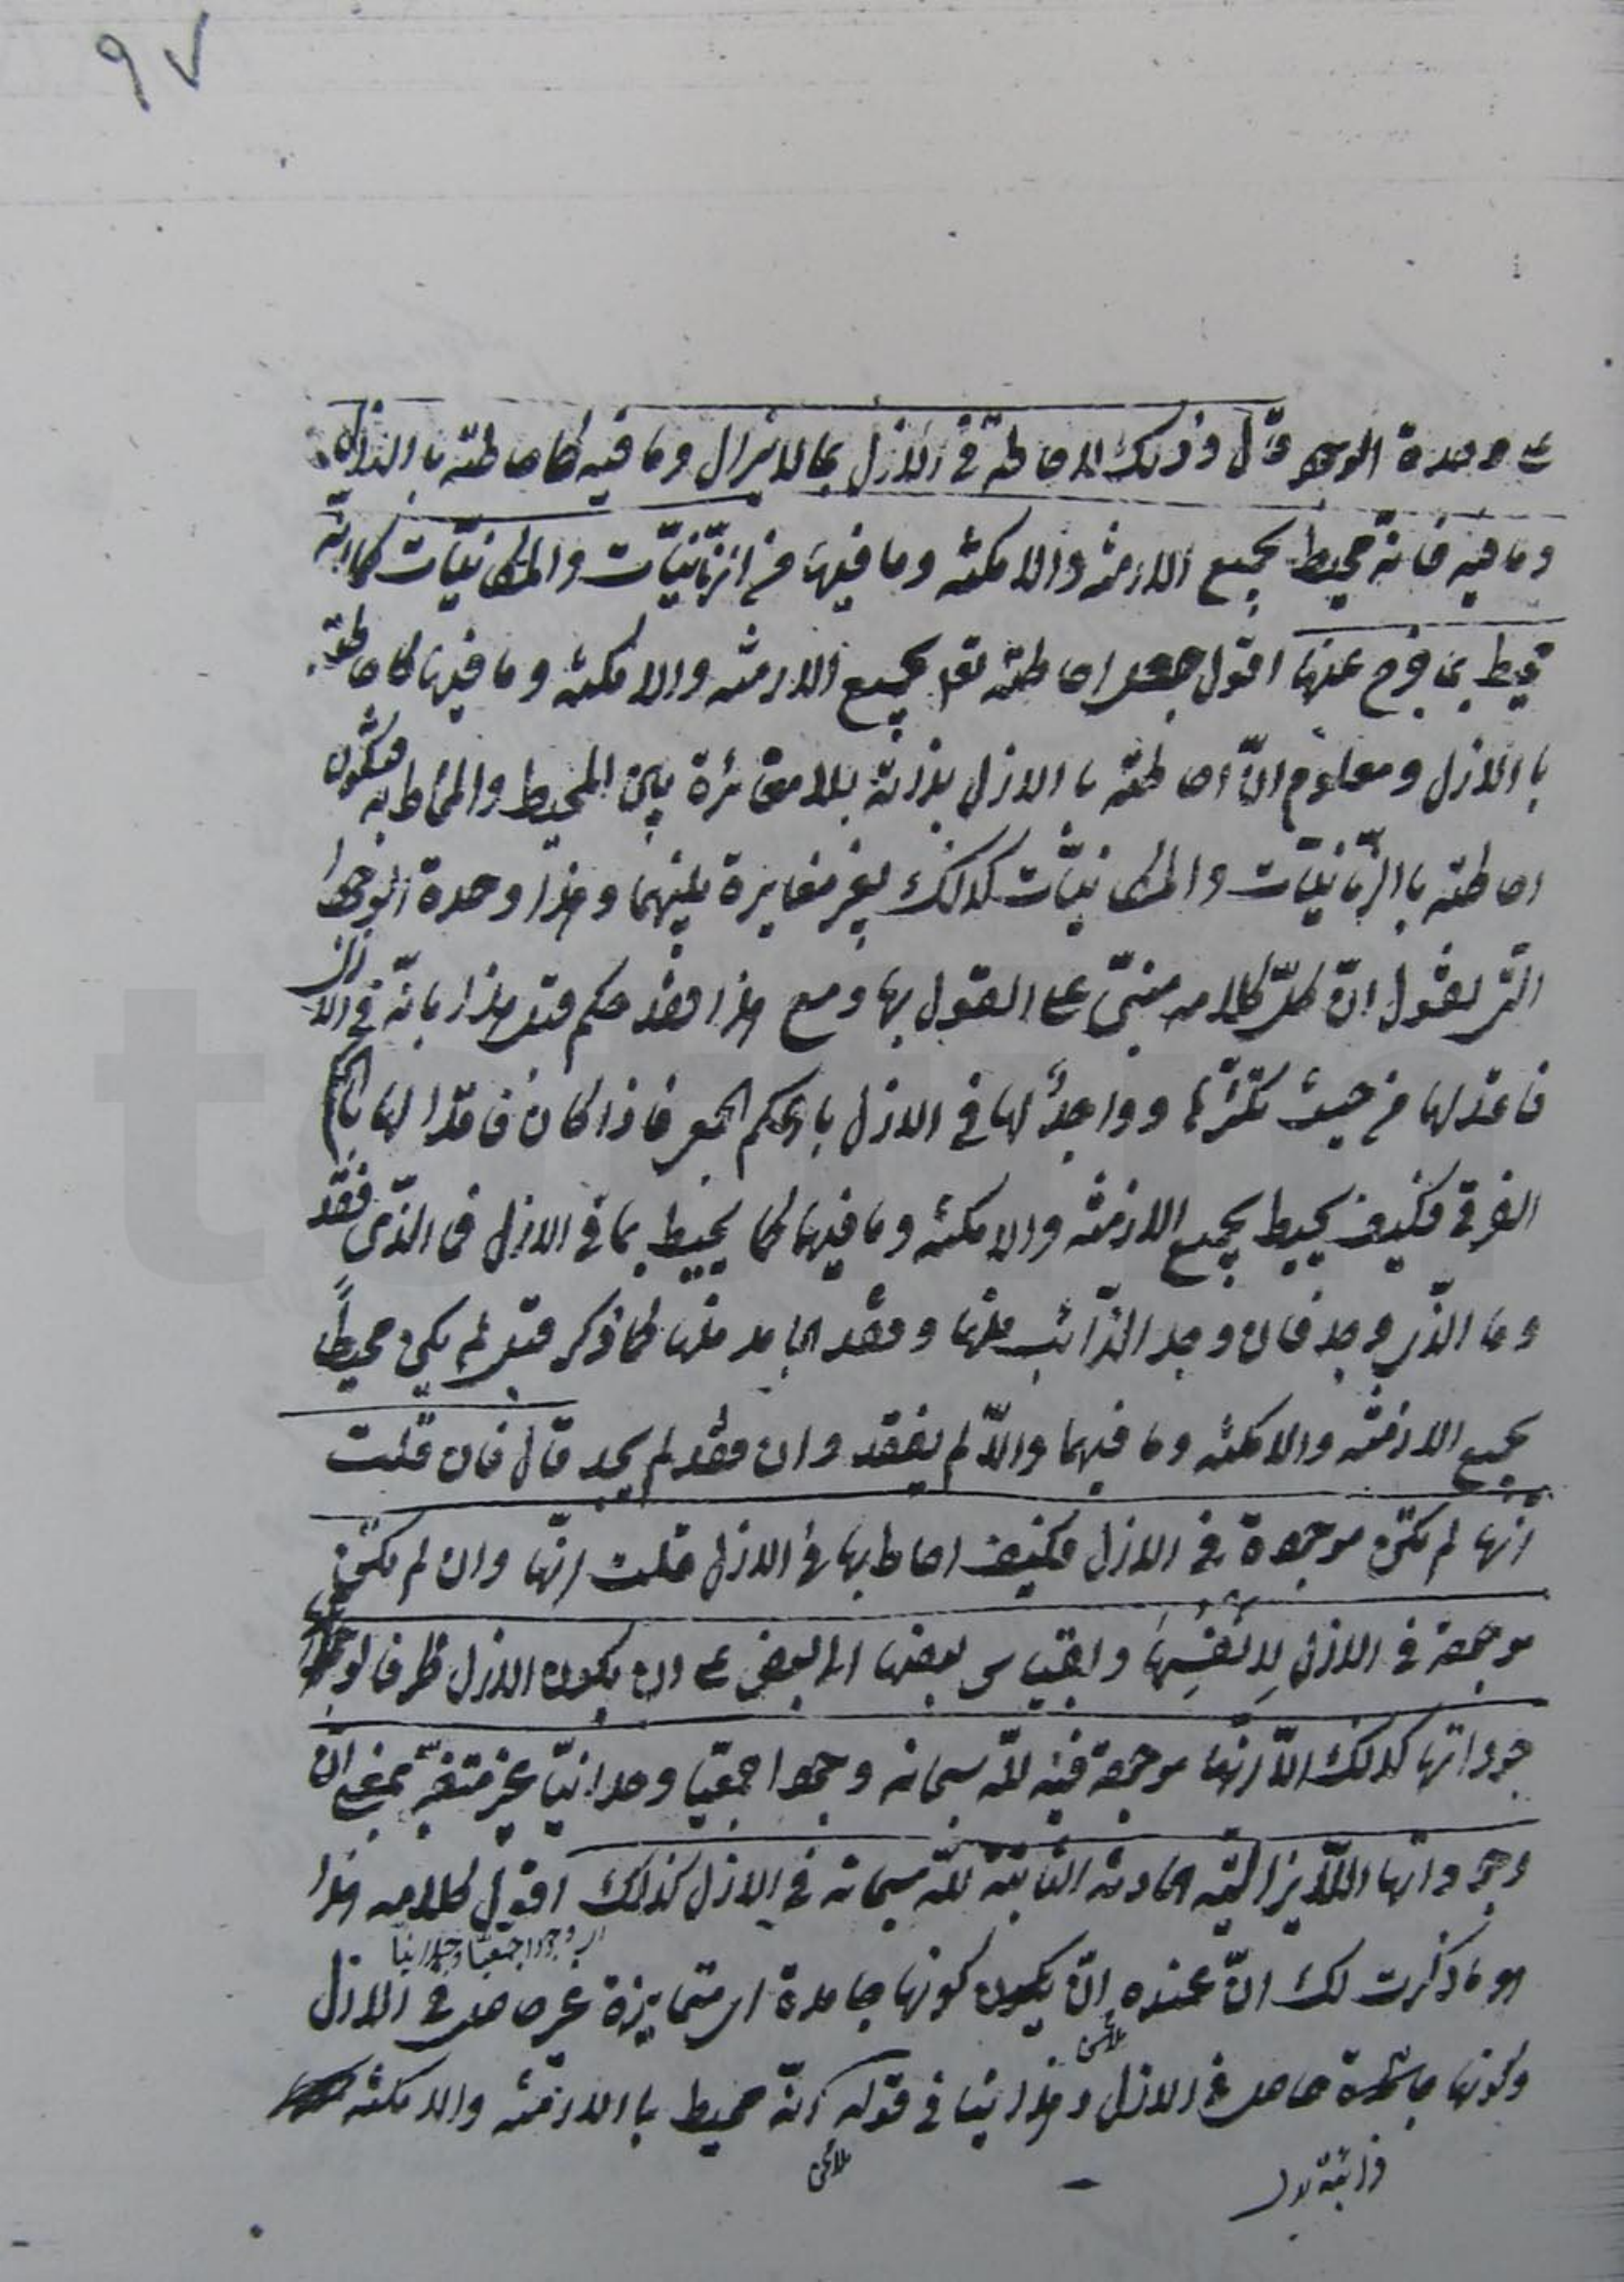 ٩٧
على وحدة الوجود قال وذلك لاحاطته في الازل بما لا يزال وما فيه كاحاطته بالازل
وما فيه فانه محيط بجميع الازمنه والامكنه وما فيها من الزمانيّات والمكانيّات كما انه
محيط بما خرج عنها اقول جعل احاطته تعالى بجميع الازمنه والامكنه وما فيها كاحاطته
با الازل ومعلوم انّ احاطته با الازل بذاته بلا مغائرة بين المحيط والمحاط به فتكون
احاطته با الزمانيّات والمكانيّات كذلك بغير مغايرة بينهما وهذا وحدة الوجود
التي نقول انّ كلّ كلامه مبنيّ على القول بها ومع هذا فقد حكم قبل هذا بانّه في الازل
فاقد لها من حيث تكثّرها وواجدٌ لها في الازل بالحكم الجمعي فاذا كان فاقدا لها بالحكم
الفرقي فكيف يحيط بجميع الازمنه والامكنه وما فيها كما يحيط بما في الازل فما الذي فقد
وما الذي وجد فان وجد الذائب منها وفقد الجامد منها كما ذكر قبل لم يكن محيطاً
بجميع الازمنه والامكنه وما فيهما والّا لم يفقد وان فقد لم يجد قال فان قلت
انها لم تكن موجودة في الازل فكيف احاط بها في الازل قلت انّها وان لم تكن
موجودة في الازل لِانفُسِها وبقياس بعضها الى بعض على ان يكون الازل ظرفا لوجوداتها
كذلك الّا انّها موجودة فيه للّه سبحانه وجودا جمعيّا وحدانيّا غير متغيّر بمعنى انّ
وجوداتها اللّايزاليّه الحادثه الثابتة للّه سبحانه في الازل كذلك اقول كلامه هذا
اي وجودا جمعيّا وحدانيا
هو ما ذكرت لك انّ عنده انّ يكون كونها جامدة اي متمايزة غير حاصل في الازل
وكونها حاصل في الازل وهذا ينافي قوله انّه محيط با الازمنه والامكنه
ذائبة بدل